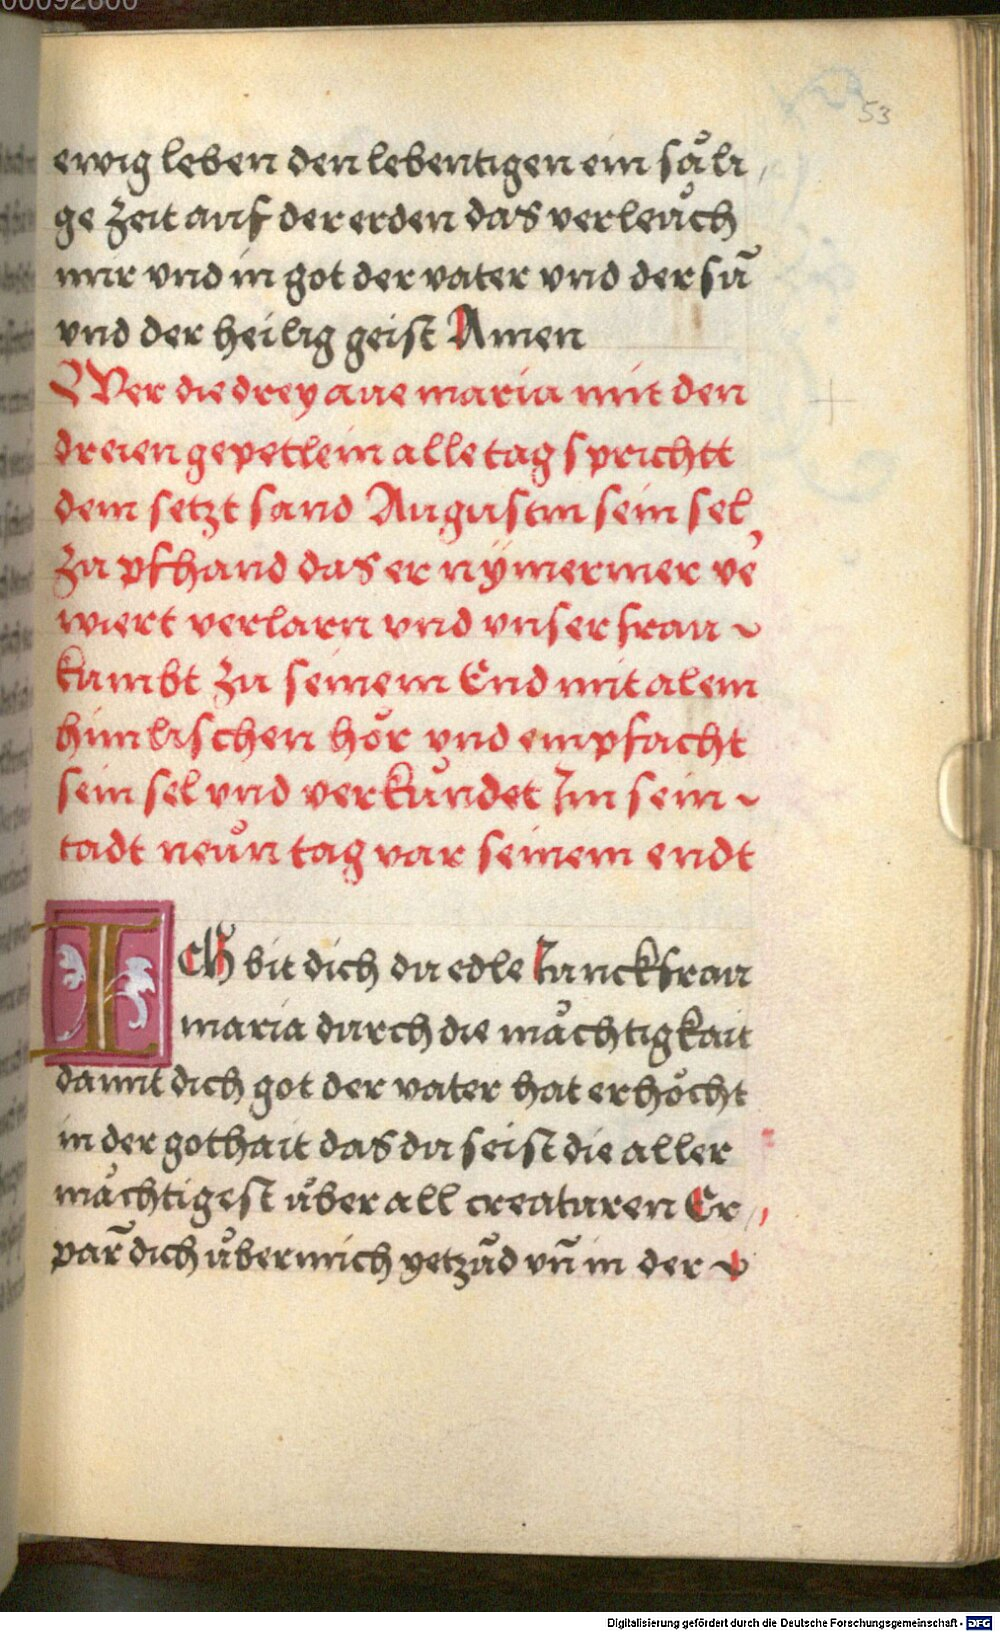 00092800
53
ewig leben den lebentigen ein såli
ge zeit auf der erden das verleůch
mir vnd in got der vater vnd der sũ
vnd der heilig geist Amen
Wer die drey aue maria mit den
dreien gepetlein alle tag sprichtt
dem setzt sand Augustin sein sel,
zu pfhand das er nÿmermer ve'
wiert verlarn vnd vnser frau ~
kumbt zu seinem End mit alem
himlischen hör vnd empfacht
sein sel vnd verkůndet Im sein ~
tadt neůn tag var seinem endt
ICh bit dich du edle Iunckfrau
maria durch die måchtigkait
damit dich got der vater hat erhöcht
in der gothait das du seist die aller
måchtigest ůber all creaturen Er,,
par̃ dich ůber mich yetzũd vñ in der ~
Digitalisierung gefördert durch die Deutsche Forschungsgemeinschaft - DFG